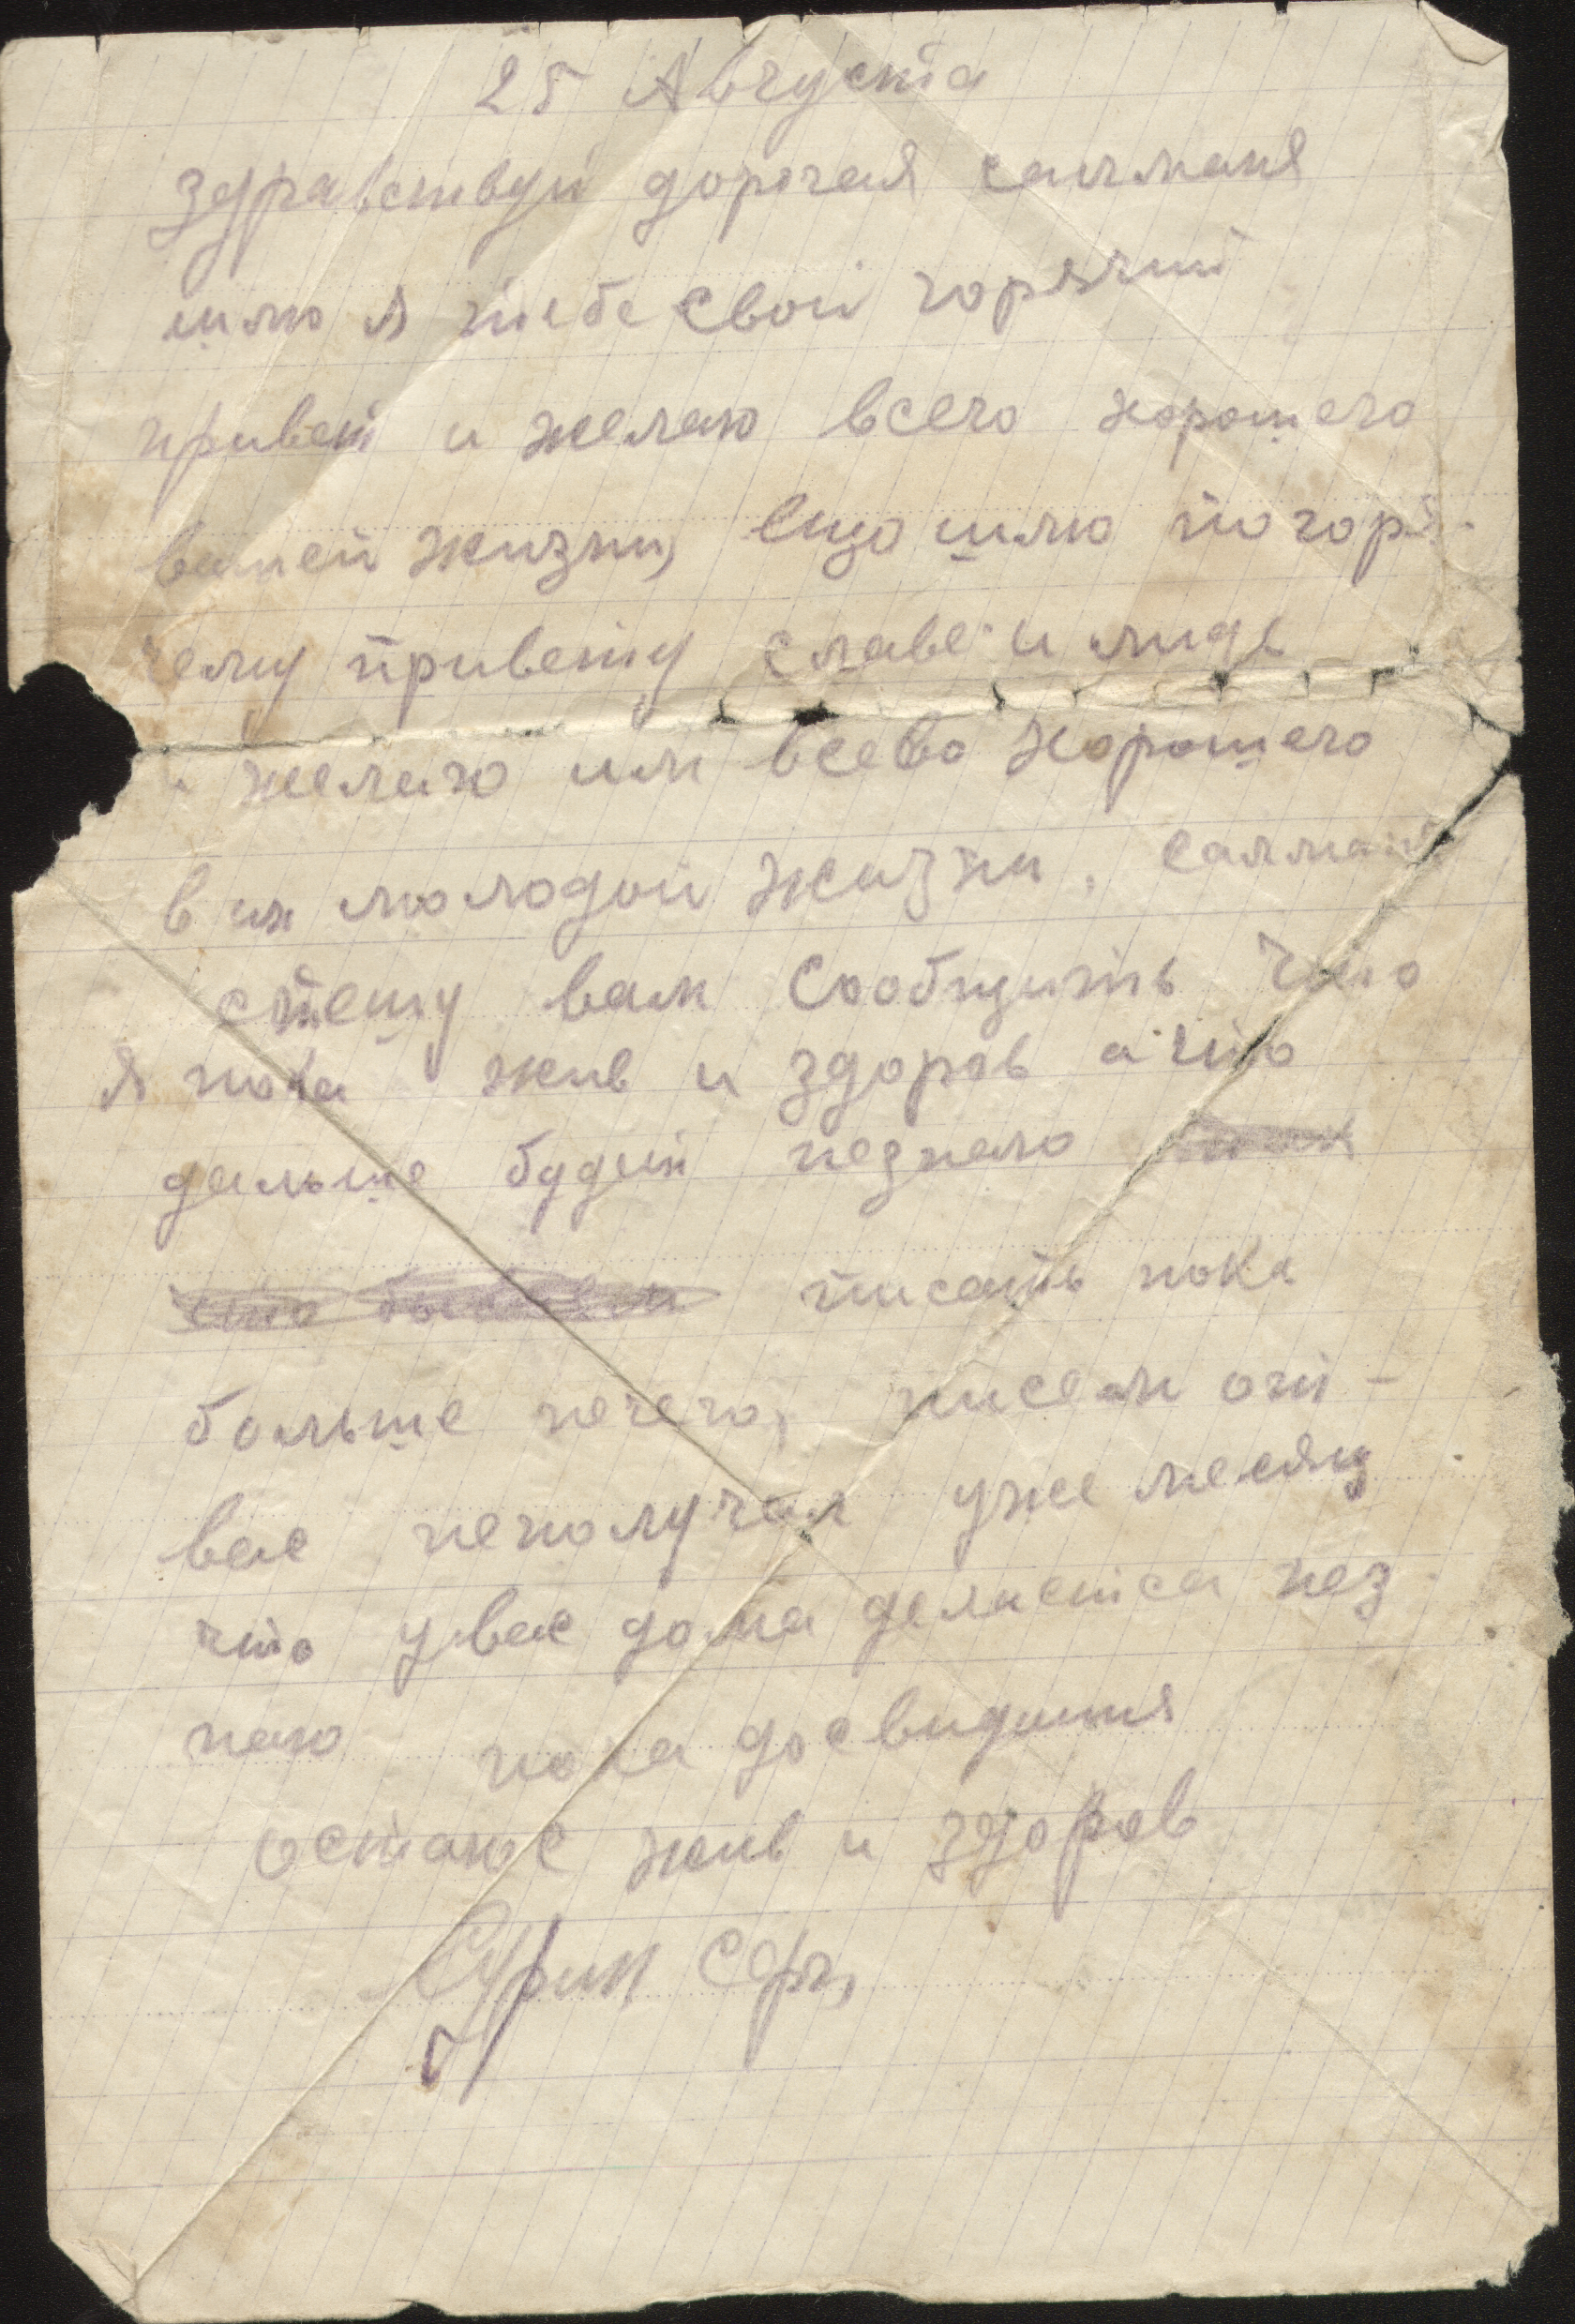 25 Августа
здравствуй дорогая
шлю я тебе свой горячий
привет и желаю всего хорошего
вашей жизни, ещо шлю по горя-
чему привету славе и лиде
и желаю им всево хорошего
в их молодой жизни,
спешу вам сообщить что
я пока жив и здоров а что
дальше будет незнаю
писать пока
больше нечего, писем от-
вас неполучал уже месяц
что увас дома делаетса нез-
наю пока досвидания
остаюс жив и здоров